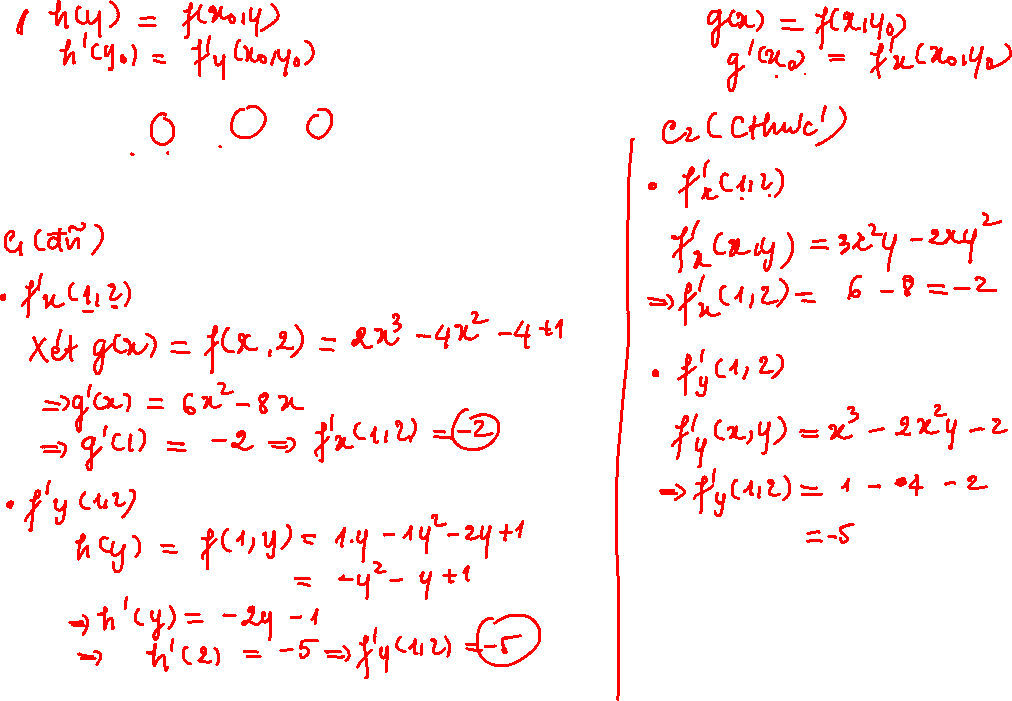 h(y) = f(x₀,y)
h'(y₀) = f'y(x₀,y₀)
g(x) = f(x,y₀)
g'(x₀) = f'x(x₀,y₀)
C₁ (đ/n)
• f'x(1,2)
Xét g(x) = f(x,2) = 2x³ - 4x² - 4 + 1
⇒ g'(x) = 6x² - 8x
⇒ g'(1) = -2 ⇒ f'x(1,2) = -2
• f'y(1,2)
h(y) = f(1,y) = 1.y - 1y² - 2y + 1
= -y² - y + 1
⇒ h'(y) = -2y - 1
⇒ h'(2) = -5 ⇒ f'y(1,2) = -5
C₂ (Cthức)
• f'x(1,2)
f'x(x,y) = 3x²y - 2xy²
⇒ f'x(1,2) = 6 - 8 = -2
• f'y(1,2)
f'y(x,y) = x³ - 2x²y - 2
⇒ f'y(1,2) = 1 - 4 - 2
= -5